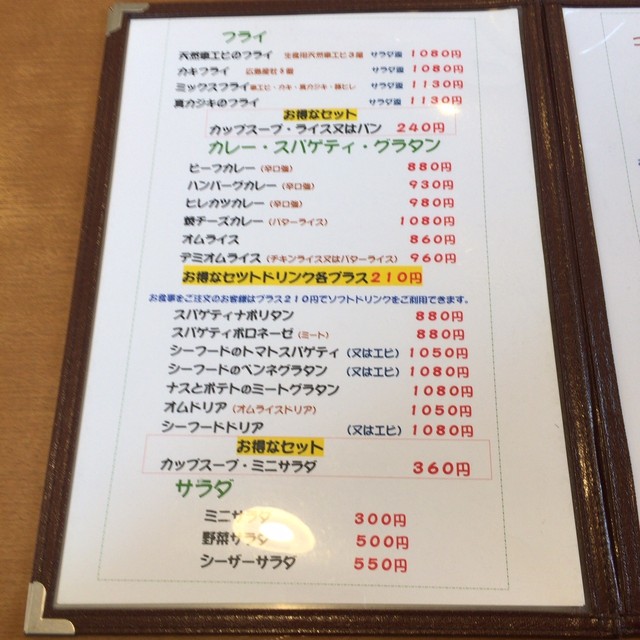 フライ
天然車エビのフライ 生産用天然車エビ3尾 サラダ添 1080円
カキフライ 広島産牡3個 サラダ添 1080円
ミックスフライ 車エビ・カキ・真カジキ・豚ヒレ サラダ添 1130円
真カジキのフライ サラダ添 1130円
お得なセット
カップスープ・ライス又はパン 240円
カレー・スパゲティ・グラタン
ビーフカレー (辛口強) 880円
ハンバーグカレー (辛口強) 930円
ヒレカツカレー (辛口強) 980円
焼チーズカレー (バターライス) 1080円
オムライス 860円
デミオムライス (チキンライス又はバターライス) 960円
お得なセツトドリンク各プラス210円
お食事をご注文のお客様はプラス210円でソフトドリンクをご利用できます。
スパゲティナポリタン 880円
スパゲティボロネーゼ (ミート) 880円
シーフードのトマトスパゲティ (又はエビ) 1050円
シーフードのペンネグラタン (又はエビ) 1080円
ナスとポテトのミートグラタン 1080円
オムドリア (オムライスドリア) 1050円
シーフードドリア (又はエビ) 1080円
お得なセット
カップスープ・ミニサラダ 360円
サラダ
ミニサラダ 300円
野菜サラダ 500円
シーザーサラダ 550円